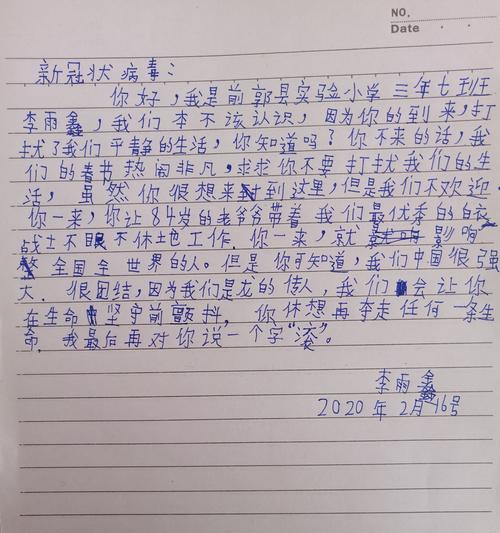 NO.
Date
新冠状病毒:
你好,我是前郭县实验小学三年七班
李雨鑫,我们本不该认识,因为你的到来,打
扰了我们平静的生活,你知道吗?你不来的话,我
们的春节热闹非凡,求求你不要打扰我们的生
活,虽然你很想来到这里,但是我们不欢迎
你一来,你让84岁的老爷爷带着我们最优秀的白衣
战士不眠不休地工作.你一来,就影响
全国全世界的人。但是你可知道,我们中国很强
大.很团结,因为我们是龙的传人,我们会让你
在生命中坚守前颤抖,你休想再夺走任何一条生
命.我最后再对你说一个字“滚”。
李雨鑫
2020年2月16号